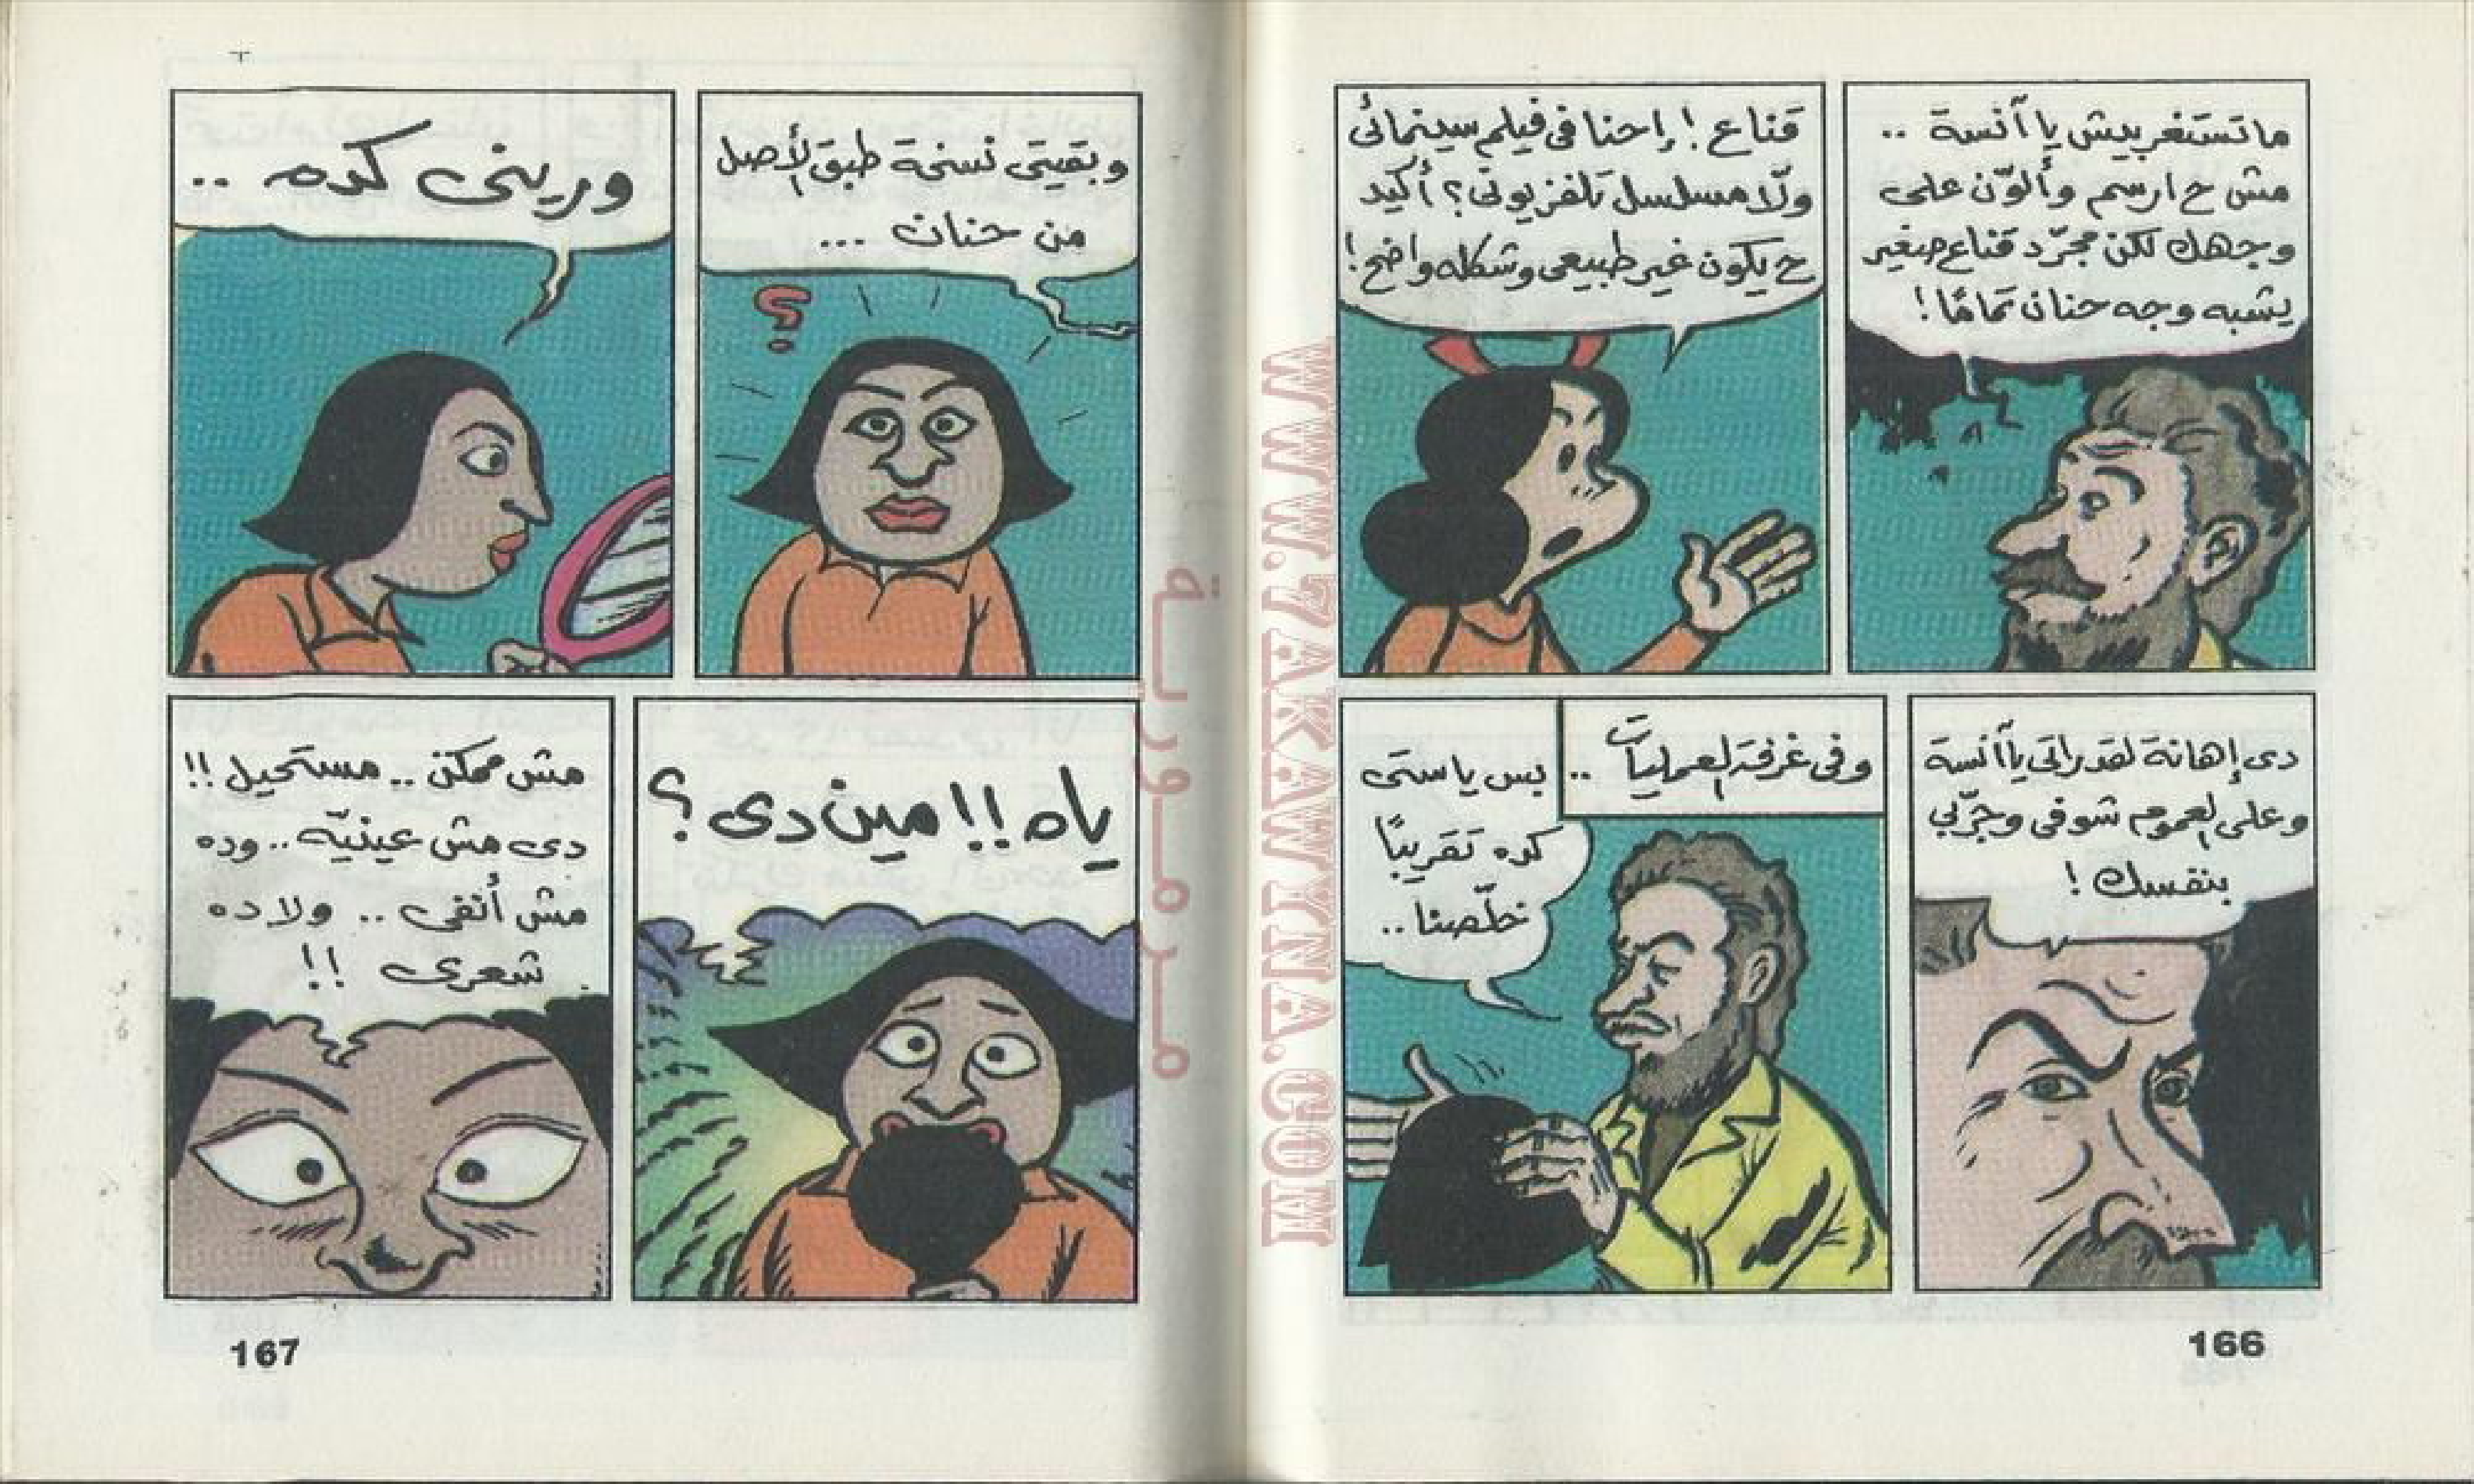 ماتستغربيش يا آنسة ..
مش ح ارسم وألوّن على
وجهك لكن مجرّد قناع صغير
يشبه وجه حنان تمامًا !
قناع ! إحنا فى فيلم سينمائى
ولّا مسلسل تلفزيونى ؟ أكيد
ح يكون غير طبيعى وشكله واضح !
دى إهانة لقدراتى يا آنسة
وعلى العموم شوفى وجرّبى
بنفسك !
وفى غرفة العمليات ..
بس يا ستى
كده تقريبًا
خلّصنا ..
166
وبقيتى نسخة طبق الأصل
من حنان ...
؟
ورينى كده ..
ياه !! مين دى ؟
مش ممكن .. مستحيل !!
دى مش عينيّه .. وده
مش أنفى .. ولا ده
شعرى !!
167
مرمورية
WWW.7AKAWYNA.COM